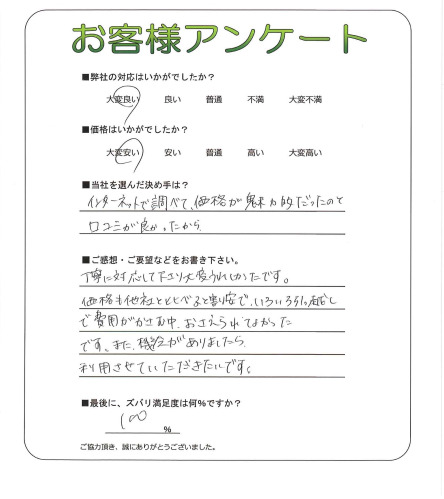 お客様アンケート
■弊社の対応はいかがでしたか？
大変良い 良い 普通 不満 大変不満
■価格はいかがでしたか？
大変安い 安い 普通 高い 大変高い
■当社を選んだ決め手は？
インターネットで調べて、価格が魅力的だったのと
口コミが良かったから
■ご感想・ご要望などをお書き下さい。
丁寧に対応して下さり大変うれしかたです。
価格も他社とくらべると割安で、いろいろ引っ越し
で費用がかさむ中、おさえられてよかった
です。また、機会がありましたら
利用させていただきたいです。
■最後に、ズバリ満足度は何％ですか？
100 %
ご協力頂き、誠にありがとうございました。